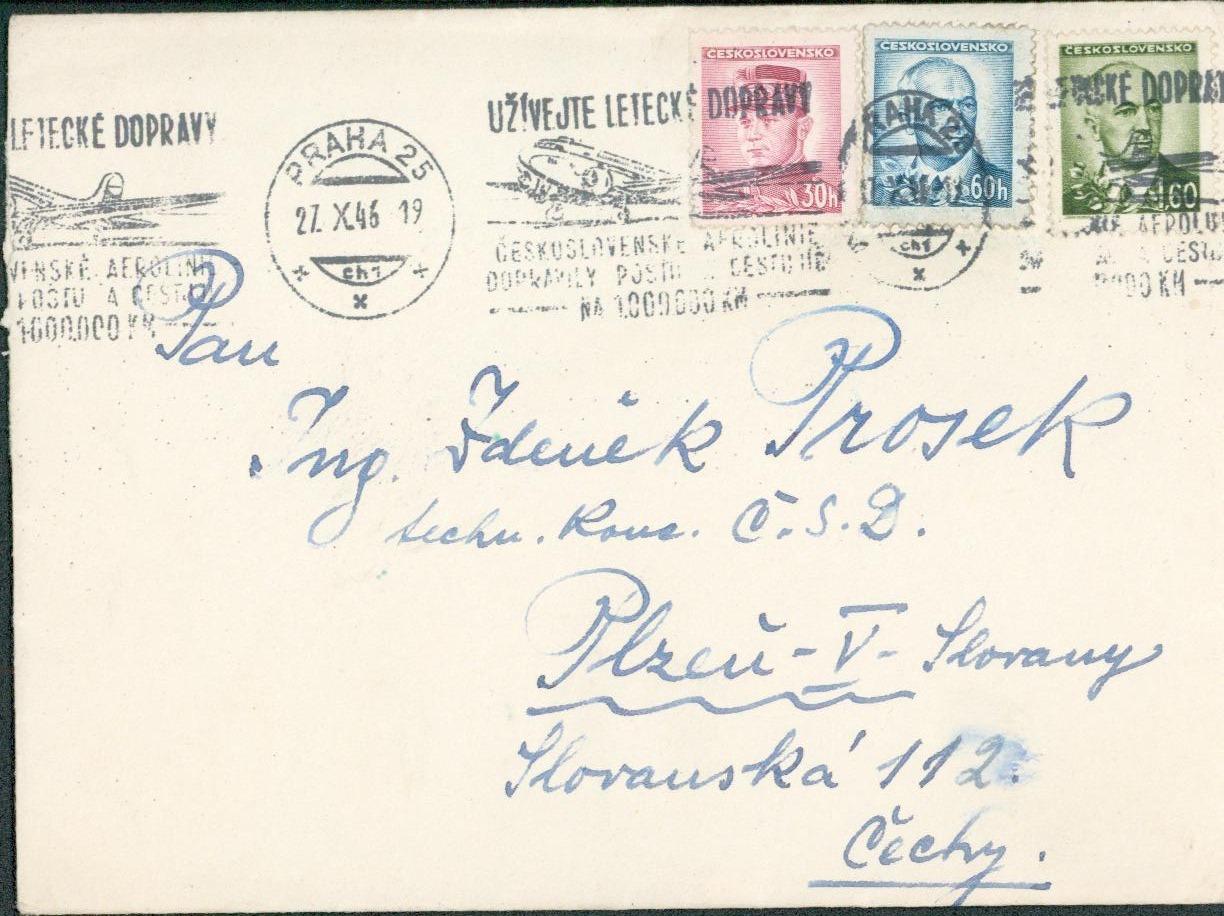 ČESKOSLOVENSKO
30h
ČESKOSLOVENSKO
60h
ČESKOSLOVENSKO
1.60
LETECKÉ DOPRAVY
VENSKÉ AEROLINIE
POSTU A CESTUJ
1.000.000 KM
PRAHA 25
27. X. 46 19
ch1
UŽÍVEJTE LETECKÉ DOPRAVY
ČESKOSLOVENSKÉ AEROLINIE
DOPRAVILY POSTU A CESTUJÍCÍ
NA 1.000.000 KM
PRAHA 25
ch1
LETECKÉ DOPRAV
AEROLI
A CEST
000 KM
Pan
Ing. Zdeněk Prosek
techn. konc. Č.S.D.
Plzeň - V - Slovany
Slovanská 112.
Čechy.